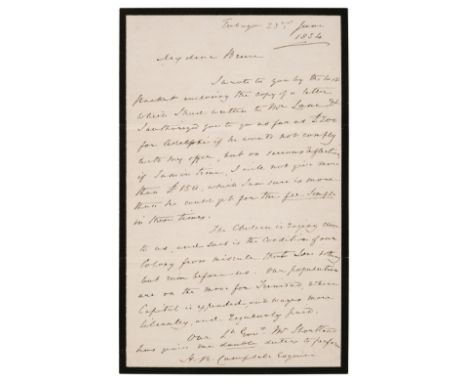 Tobago 23rd June
1854
My dear Bruce
I wrote to you by the last
Packet enclosing the copy of a letter
which I had written to Mr Lane &
I authorized you to go as far as £200
for if he would not comply
with my offer, but on serious reflection
if I am in time, I will not give more
than £150, which I am sure is more
than he could get for the fee simple
in these times.
The Cholera is very near
to us, and such is the condition of our
Colony from misrule that I see nothing
but ruin before us. Our population
are on the move for Trinidad, where
Capital is expended and wages more
liberally, and regularly paid.
Our Lt Govr Mr Shortland
has given me double duties to perform
H. B. Campbell Esquire